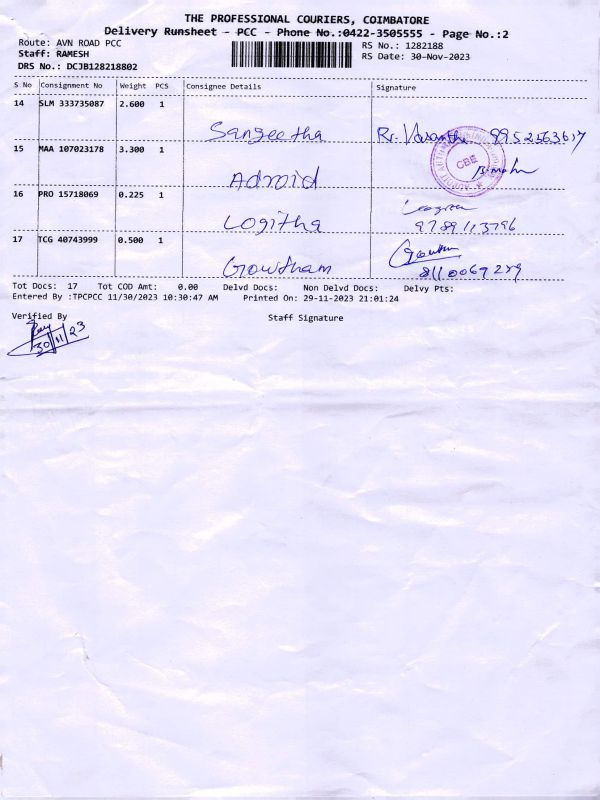 THE PROFESSIONAL COURIERS, COIMBATORE
Delivery Runsheet - PCC - Phone No.:0422-3505555 - Page No.:2
Route: AVN ROAD PCC
RS No.: 1282188
Staff: RAMESH
RS Date: 30-Nov-2023
DRS No.: DCJB128218802
S.No Consignment No Weight PCS Consignee Details Signature
14 SLM 333735087 2.600 1
Sangeetha 9952563617
15 MAA 107023178 3.300 1
CBE
Adroid
16 PRO 15718069 0.225 1
Logitha 9789113796
17 TCG 40743999 0.500 1
Gowtham 8110067279
Tot Docs: 17 Tot COD Amt: 0.00 Delvd Docs: Non Delvd Docs: Delvy Pts:
Entered By :TPCPCC 11/30/2023 10:30:47 AM Printed On: 29-11-2023 21:01:24
Verified By Staff Signature
30/11/23